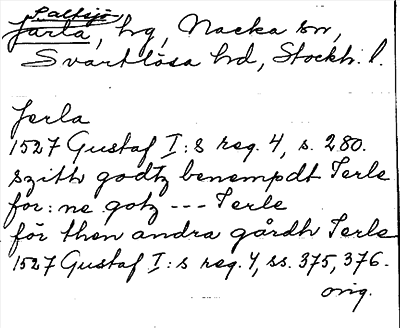 Saltsjö
Järla, hg, Nacka sn,
Svartlösa hd, Stockh. l.
Jerla
1527 Gustaf I:s reg. 4, s. 280.
szith godtz benempdt Jerle
for: ne gotz --- Jerle
för then andra gårdh Jerle
1527 Gustaf I:s reg. 4, ss. 375, 376.
orig.